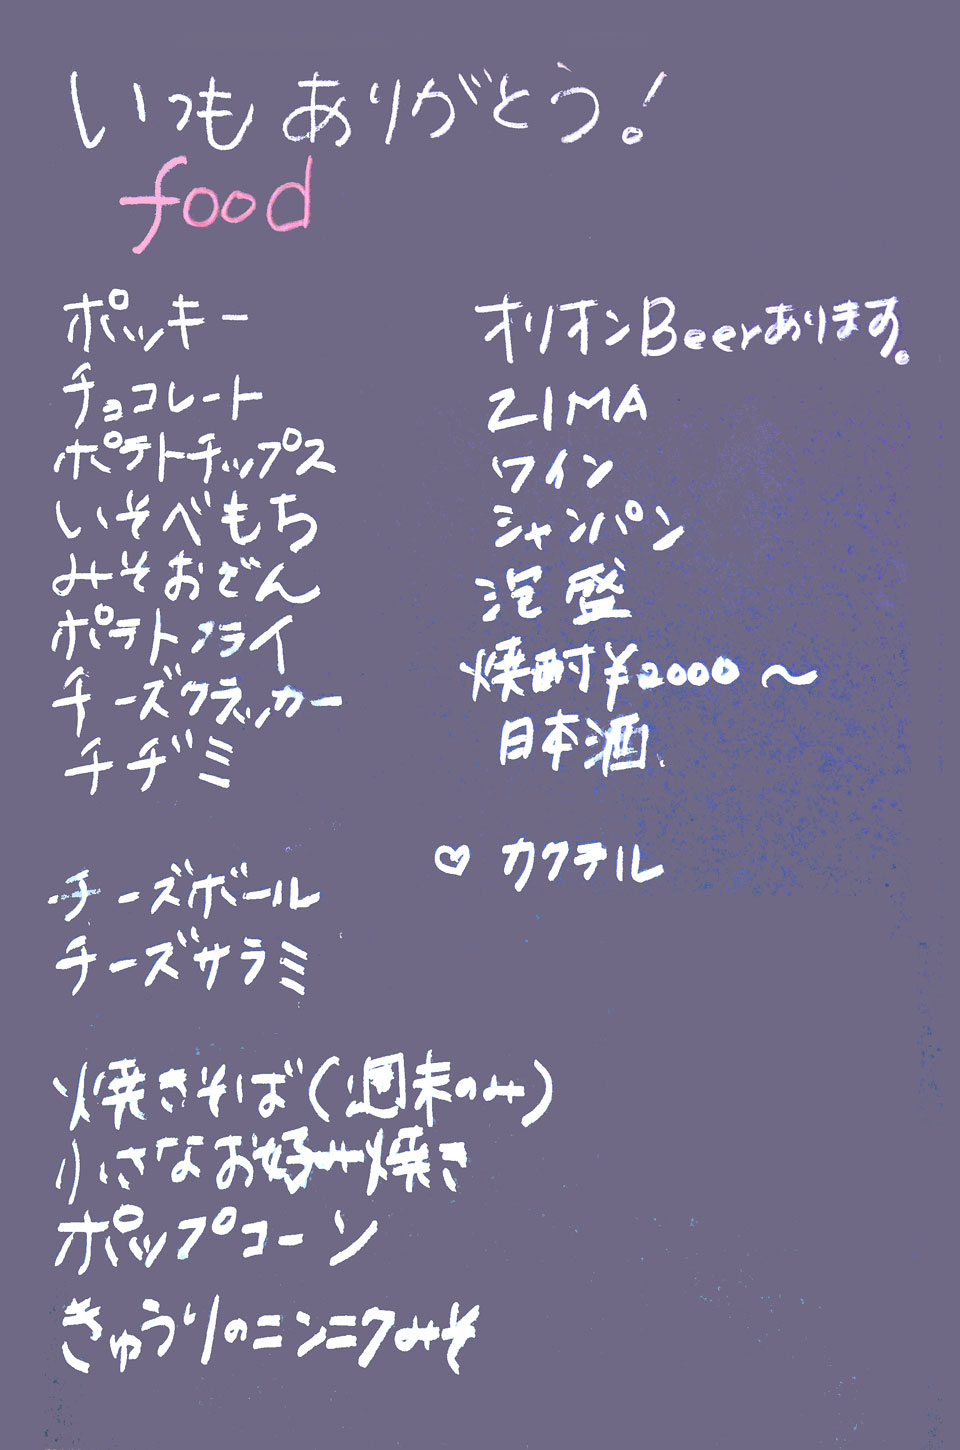 いつもありがとう!
food
ポッキー
チョコレート
ポテトチップス
いそべもち
みそおでん
ポテトフライ
チーズクラッカー
チヂミ
チーズボール
チーズサラミ
焼きそば(週末のみ)
小さなお好み焼き
ポップコーン
きゅうりのニンニクみそ
オリオンBeerあります。
ZIMA
ワイン
シャンパン
泡盛
焼酎¥2000〜
日本酒
♡ カクテル